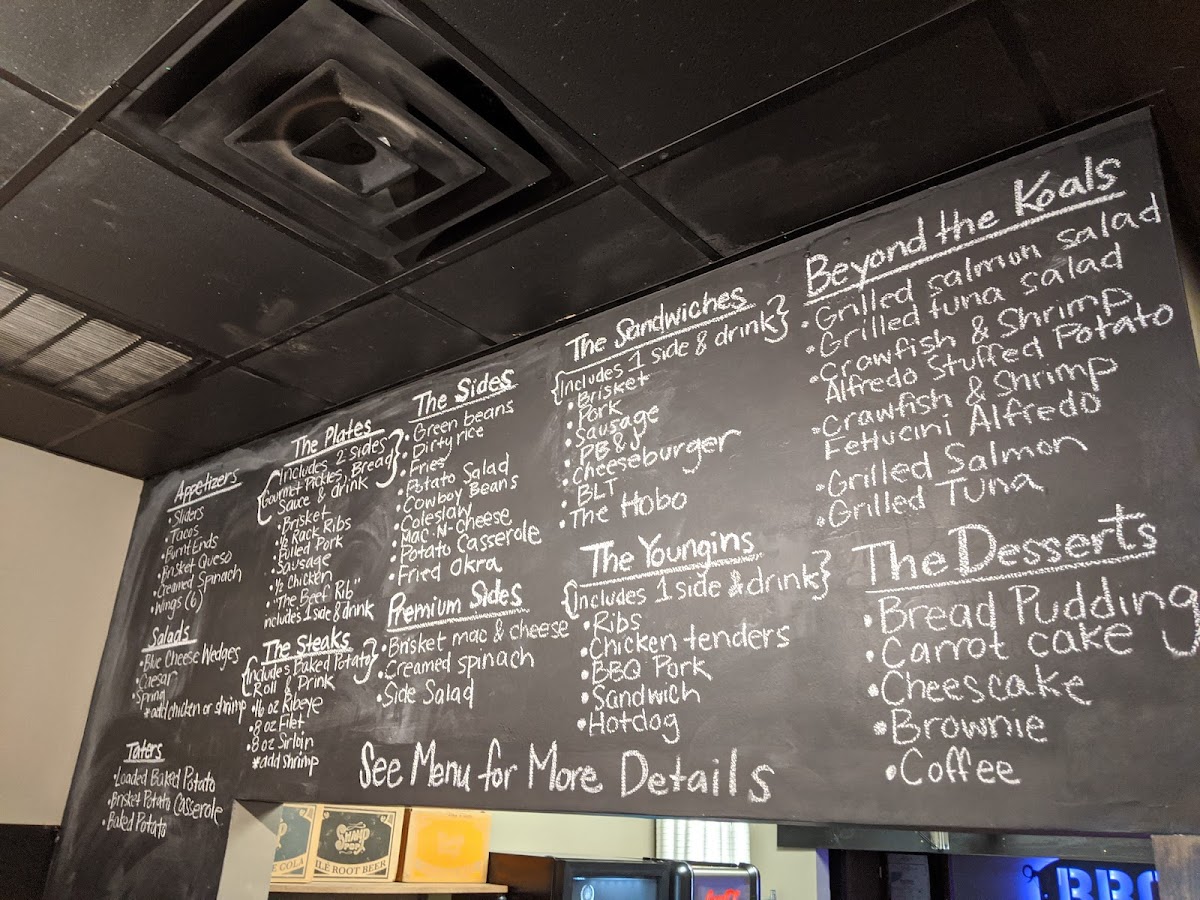 Appetizers
• Sliders
• Tacos
• Burnt Ends
• Brisket Queso
• Creamed Spinach
• Wings (6)
Salads
• Blue Cheese Wedges
• Caesar
• Spring
*add chicken or shrimp
Taters
• Loaded Baked Potato
• Brisket Potato Casserole
• Baked Potato
The Plates
{Includes 2 sides
Gourmet Pickles, Bread
Sauce & drink}
• Brisket
• ½ Rack Ribs
• Pulled Pork
• Sausage
• ½ Chicken
• "The Beef Rib"
includes 1 side & drink
The Steaks
{Includes Baked Potato
Roll & Drink}
• 16 oz Ribeye
• 8 oz Filet
• 8 oz Sirloin
*add shrimp
The Sides
• Green beans
• Dirty rice
• Fries
• Potato Salad
• Cowboy Beans
• Coleslaw
• Mac-N-Cheese
• Potato Casserole
• Fried Okra
Premium Sides
• Brisket mac & cheese
• Creamed spinach
• Side Salad
The Sandwiches
{Includes 1 side & drink}
• Brisket
• Pork
• Sausage
• PB&J
• Cheeseburger
• BLT
• The Hobo
The Youngins
{Includes 1 side & drink}
• Ribs
• Chicken tenders
• BBQ Pork
• Sandwich
• Hotdog
Beyond the Koals
• Grilled salmon salad
• Grilled tuna salad
• Crawfish & Shrimp
Alfredo Stuffed Potato
• Crawfish & Shrimp
Fettucini Alfredo
• Grilled Salmon
• Grilled Tuna
The Desserts
• Bread Pudding
• Carrot cake
• Cheescake
• Brownie
• Coffee
See Menu for More Details
SWAMP POP
ROOT BEER
COLA
BBQ